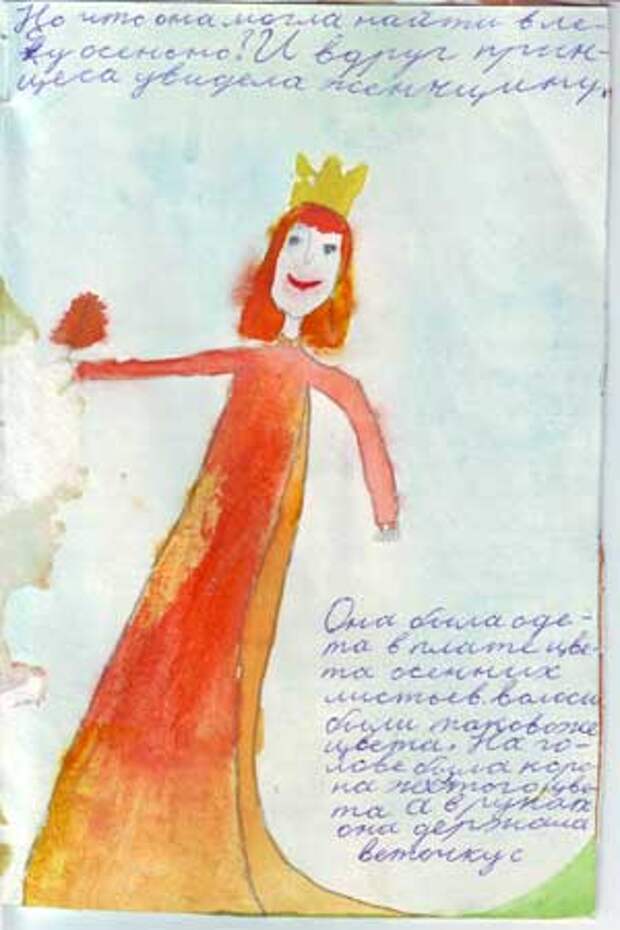 Но что она могла найти в ле-
су осенью? И вдруг прин-
цеса увидела женчщину.
Она была оде-
та в плате цве-
та осенних
листьев. волосы
были таковоже
цвета. На го-
лове была коро
на жёлтого цве
та А в руках
она держала
веточку с